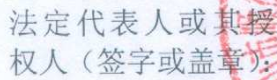 法定代表人或其授
权人（签字或盖章）：